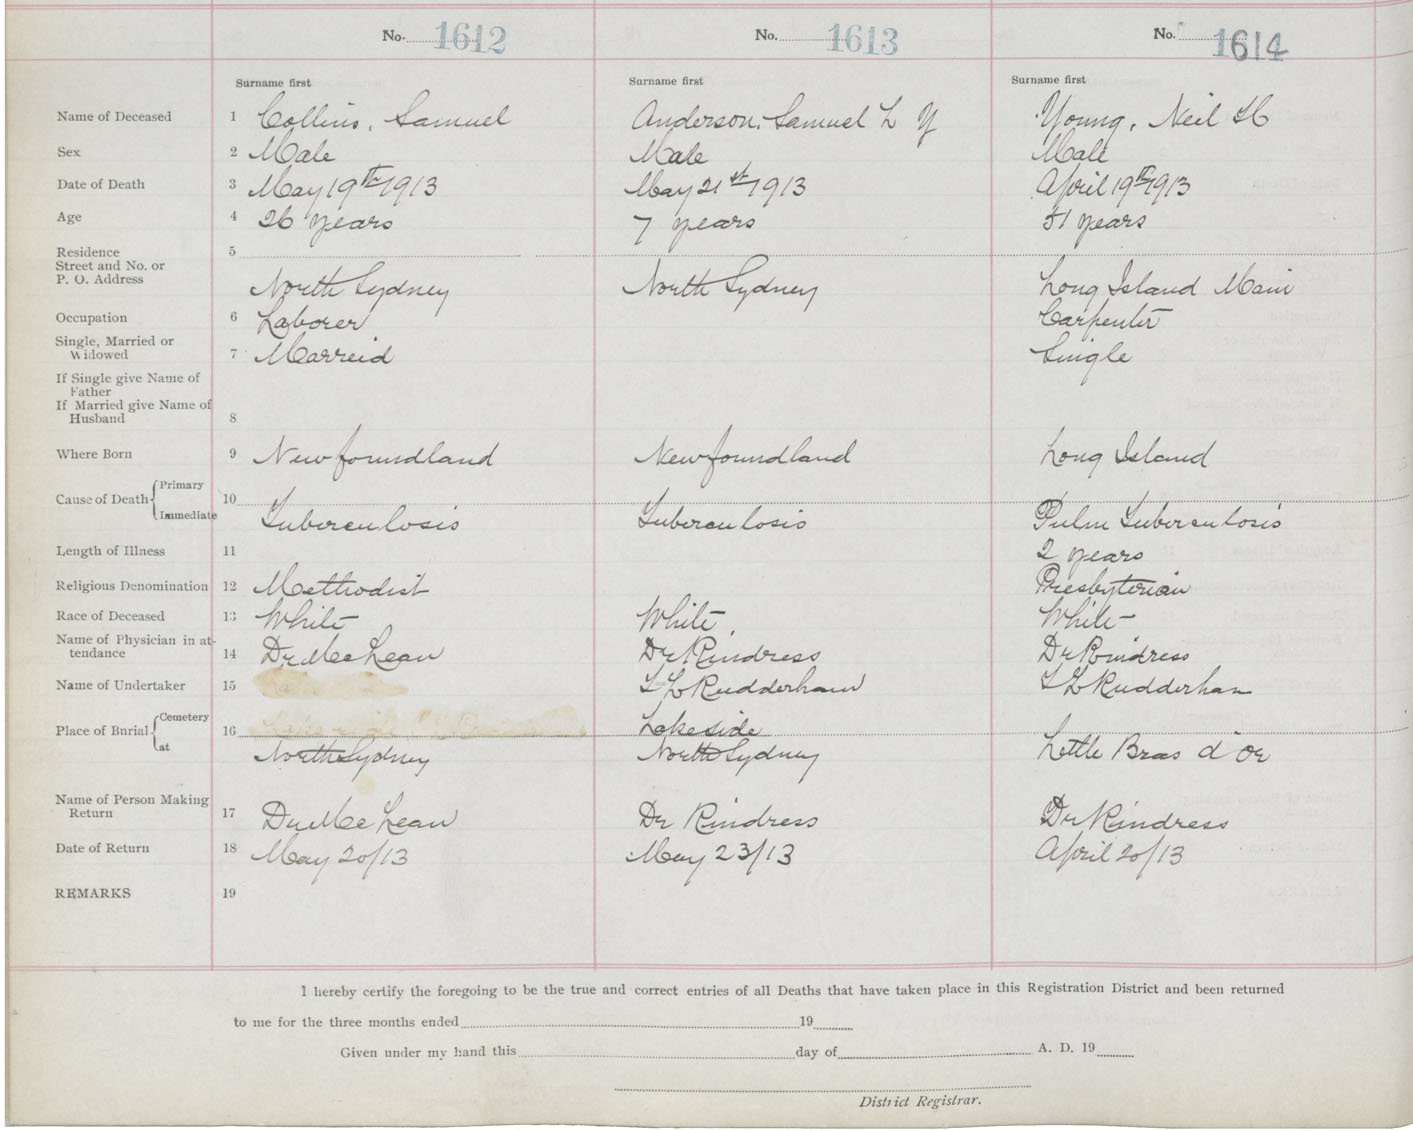 No. 1612 No. 1613 No. 1614
Surname first Surname first Surname first
Name of Deceased 1 Collins, Samuel Anderson, Samuel L Y Young, Neil H
Sex 2 Male Male Male
Date of Death 3 May 19th 1913 May 21st 1913 April 19th 1913
Age 4 26 years 7 years 51 years
Residence 5
Street and No. or
P. O. Address North Sydney North Sydney Long Island Main
Occupation 6 Laborer Carpenter
Single, Married or
Widowed 7 Marreid Single
If Single give Name of
Father
If Married give Name of
Husband 8
Where Born 9 Newfoundland Newfoundland Long Island
Cause of Death Primary 10
Immediate Tuberculosis Tuberculosis Pulm Tuberculosis
Length of Illness 11 2 years
Religious Denomination 12 Methodist Presbyterian
Race of Deceased 13 White White White
Name of Physician in at-
tendance 14 Dr McLean Dr Rindress Dr Rindress
Name of Undertaker 15 L L Rudderham L L Rudderham
Place of Burial Cemetery 16 Lakeside
at North Sydney North Sydney Little Bras d'Or
Name of Person Making
Return 17 Dr McLean Dr Rindress Dr Rindress
Date of Return 18 May 20/13 May 23/13 April 20/13
REMARKS 19
I hereby certify the foregoing to be the true and correct entries of all Deaths that have taken place in this Registration District and been returned
to me for the three months ended 19
Given under my hand this day of A. D. 19
District Registrar.